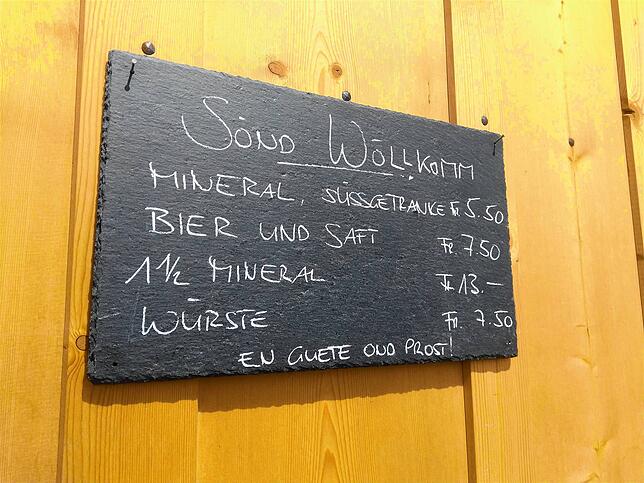 SÖND WÖLLKOMM
MINERAL, SÜSSGETRÄNKE Fr 5.50
BIER UND SAFT Fr. 7.50
1 1/2 MINERAL Fr 13.–
WÜRSTE Fr. 7.50
EN GUETE OND PROST!